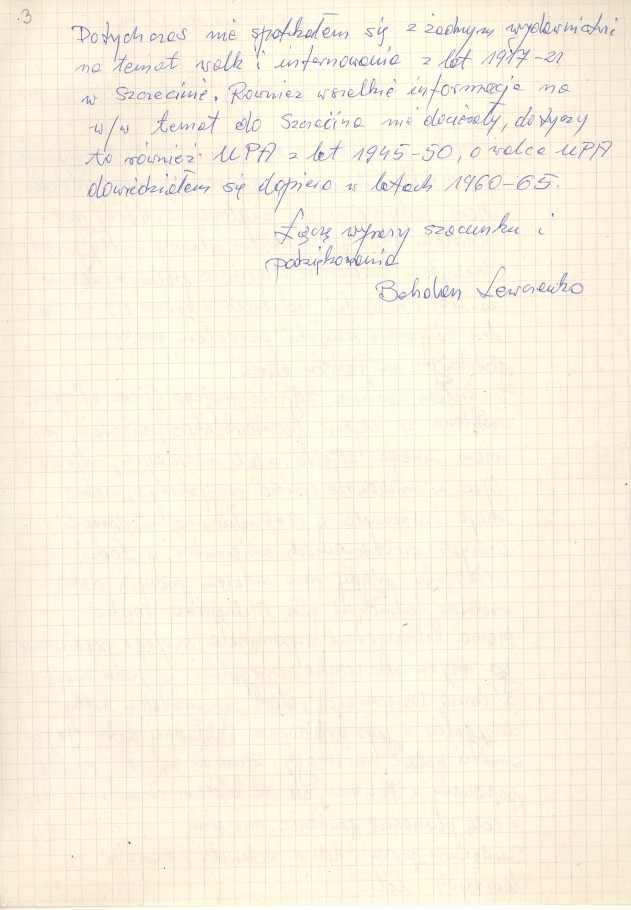 3
Dotychczas nie spotkałem się z żadnym wydawnictwem
na temat walk i internowania z lat 1917-21
w Szczecinie. Również wszelkie informacje na
w/w temat do Szczecina nie docierały, dotyczy
to również UPA z lat 1945-50, o walce UPA
dowiedziałem się dopiero w latach 1960-65.
Łączę wyrazy szacunku i
podziękowania
Bohdan